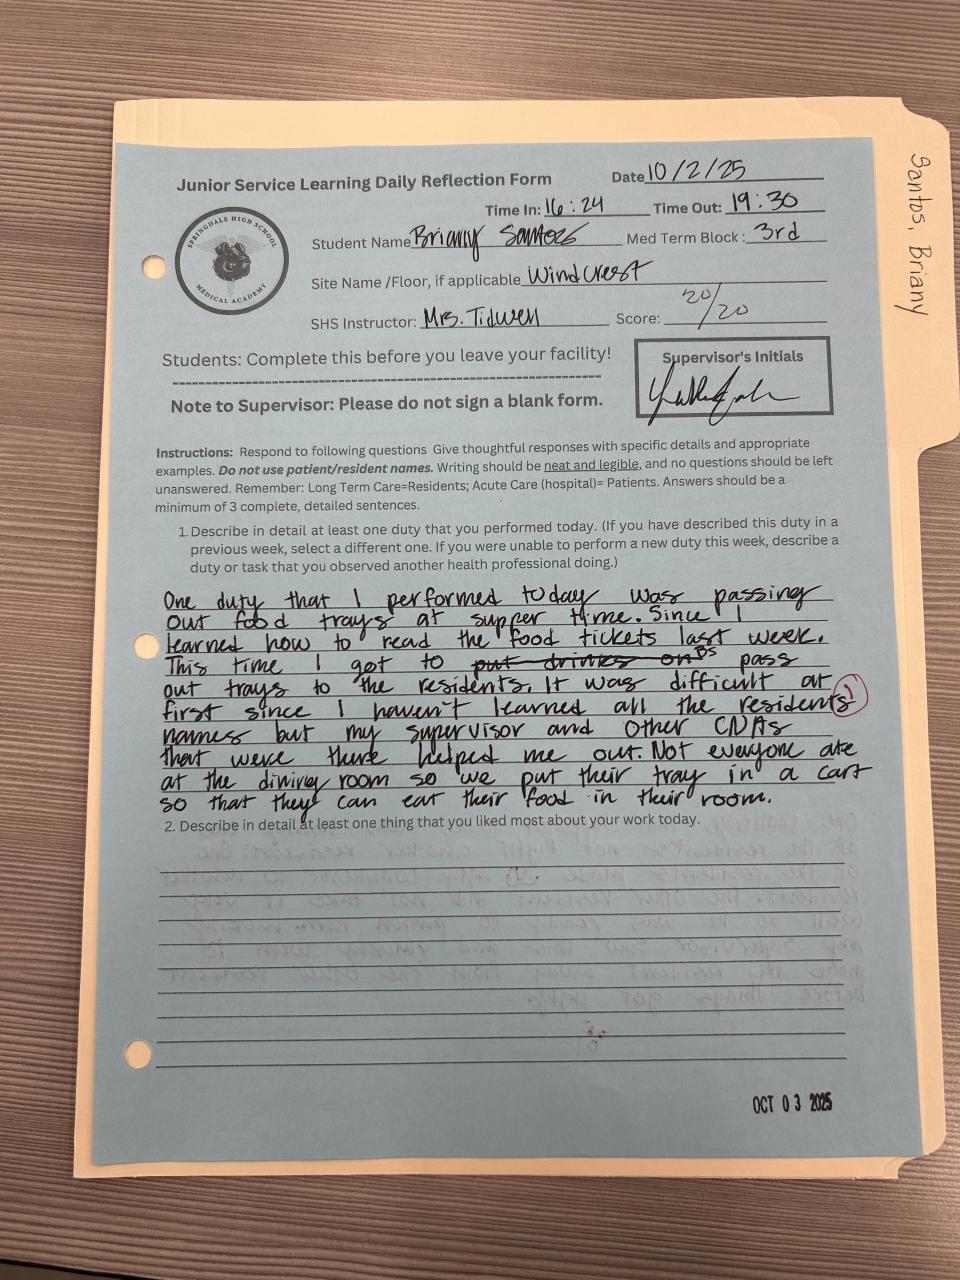 Santos, Briany
Junior Service Learning Daily Reflection Form
Date 10/2/25
Time In: 16:24 Time Out: 19:30
SPRINGDALE HIGH SCHOOL
MEDICAL ACADEMY
Student Name Briany Santos Med Term Block: 3rd
Site Name /Floor, if applicable Windcrest
SHS Instructor: Mrs. Tidwell Score: 20/20
Students: Complete this before you leave your facility!
Supervisor's Initials
Note to Supervisor: Please do not sign a blank form.
Instructions: Respond to following questions Give thoughtful responses with specific details and appropriate
examples. Do not use patient/resident names. Writing should be neat and legible, and no questions should be left
unanswered. Remember: Long Term Care=Residents; Acute Care (hospital)= Patients. Answers should be a
minimum of 3 complete, detailed sentences.
1. Describe in detail at least one duty that you performed today. (If you have described this duty in a
previous week, select a different one. If you were unable to perform a new duty this week, describe a
duty or task that you observed another health professional doing.)
One duty that I performed today was passing
out food trays at supper time. Since I
learned how to read the food tickets last week.
This time I got to put drinks on BS pass
out trays to the residents. It was difficult at
first since I haven't learned all the residents'
names but my supervisor and other CNAs
that were there helped me out. Not everyone ate
at the dining room so we put their tray in a cart
so that they can eat their food in their room.
2. Describe in detail at least one thing that you liked most about your work today.
OCT 03 2025